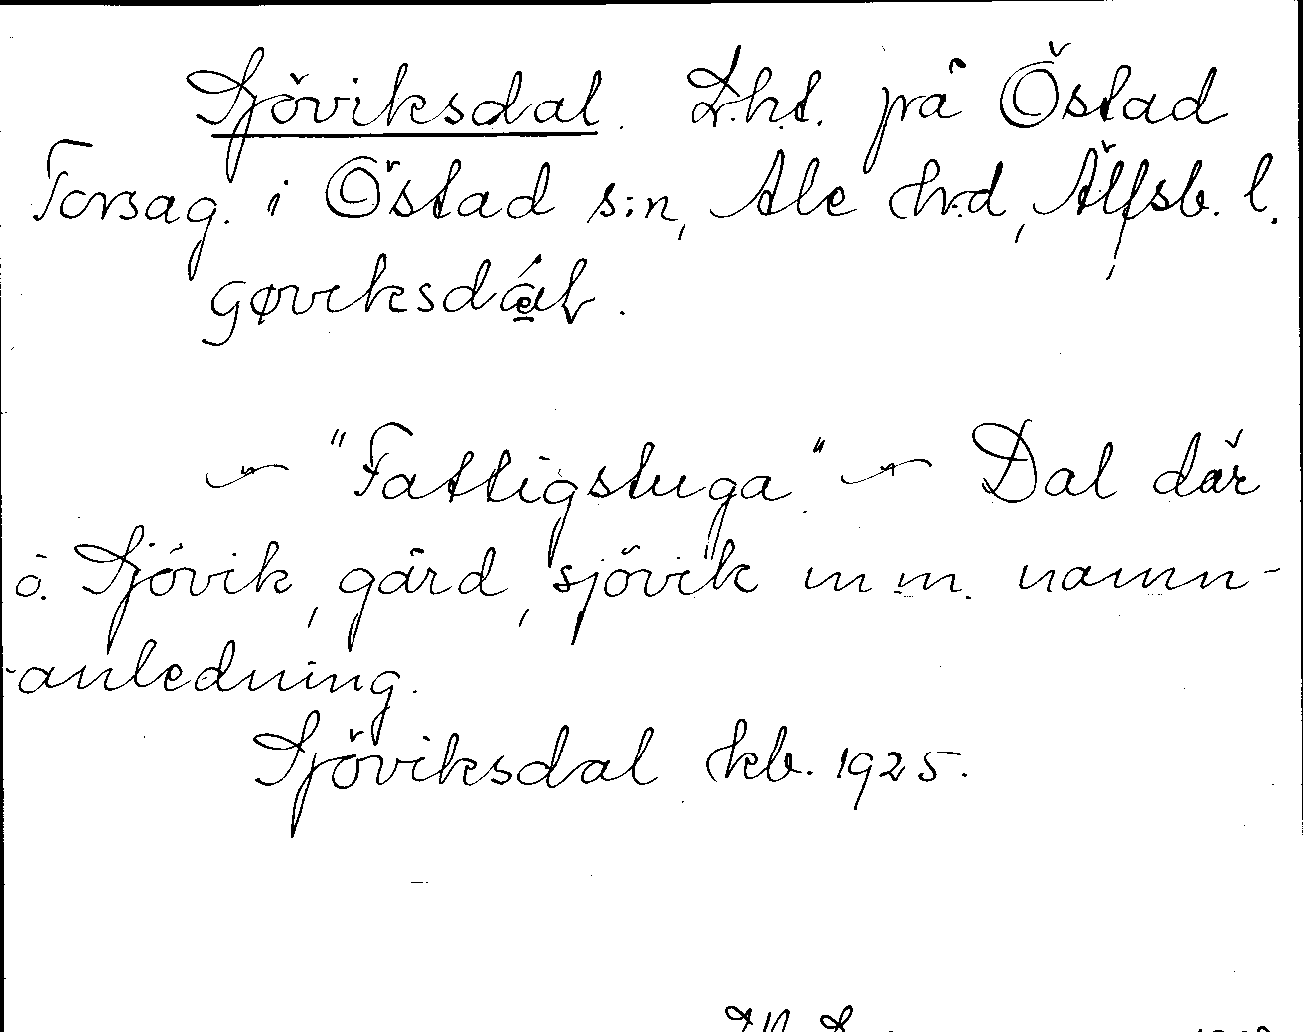 Sjöviksdal. Lht. på Östad
Torsag. i Östad s:n, Ale hrd, Älfsb. l.
"Fattigstuga." Dal där
o. Sjövik, gård, sjövik m.m. namn-
-anledning.
Sjöviksdal kb. 1925.